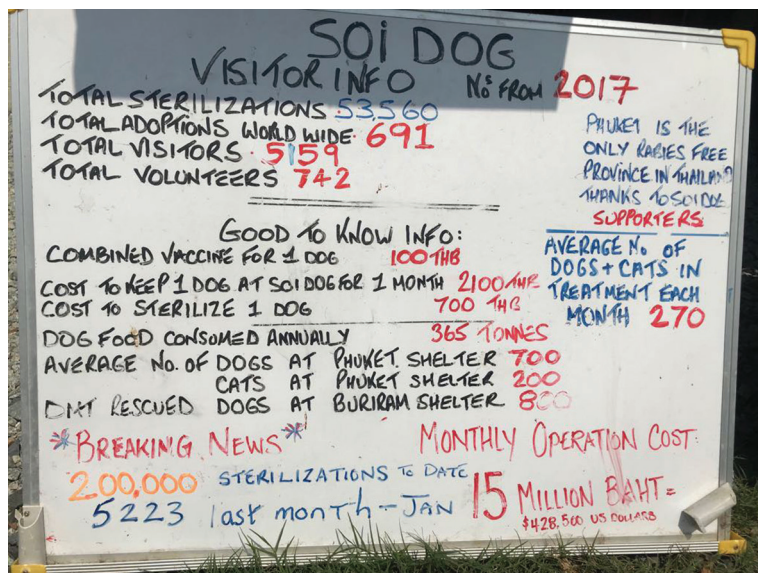 SOI DOG
VISITOR INFO No̲s FROM 2017
TOTAL STERILIZATIONS 53,560
TOTAL ADOPTIONS WORLD WIDE. 691
TOTAL VISITORS. 5159
TOTAL VOLUNTEERS 742
PHUKET IS THE
ONLY RABIES FREE
PROVINCE IN THAILAND
THANKS TO SOI DOG
SUPPORTERS
GOOD TO KNOW INFO:
COMBINED VACCINE FOR 1 DOG 100 THB
COST TO KEEP 1 DOG AT SOI DOG FOR 1 MONTH 2100 THB
COST TO STERILIZE 1 DOG 700 THB
DOG FOOD CONSUMED ANNUALLY 365 TONNES
AVERAGE No. OF DOGS AT PHUKET SHELTER 700
CATS AT PHUKET SHELTER 200
DMT RESCUED DOGS AT BURIRAM SHELTER 800
AVERAGE No. OF
DOGS + CATS IN
TREATMENT EACH
MONTH 270
*BREAKING NEWS*
200,000 STERILIZATIONS TO DATE
5223 last month - JAN
MONTHLY OPERATION COST:
15 MILLION BAHT =
$428,500 US DOLLARS